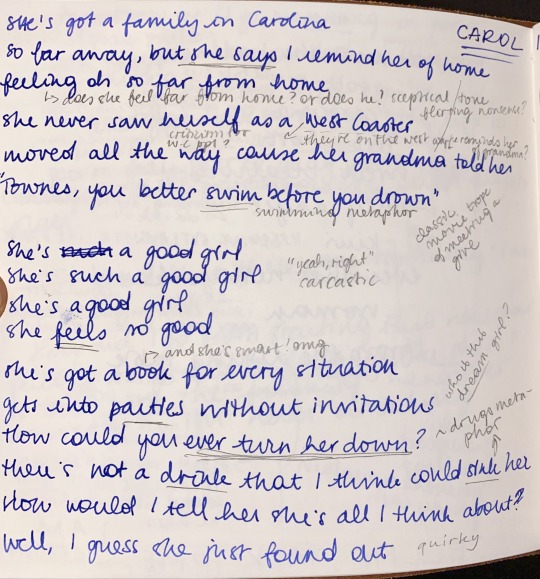 She's got a family in Carolina
CAROL
so far away, but she says I remind her of home
feeling oh so far from home
↳ does she feel far from home? or does he? sceptical/tone
flirting nonsense?
she never saw herself as a West Coaster
criticism for
w.c ppl?
they're on the west
reminds her
of grandma?
moved all the way cause her grandma told her
"Townes, you better swim before you drown"
swimming metaphor
classic
movie trope
of meeting a
girl
She's such a good girl
"yeah, right"
She's such a good girl
sarcastic
She's a good girl
She feels so good
↳ and she's smart! omg
She's got a book for every situation
who is this
dream girl?
gets into parties without invitations
How could you ever turn her down?
~drugs meta-
phor
There's not a drink that I think could sink her
How would I tell her she's all I think about?
Well, I guess she just found out
quirky